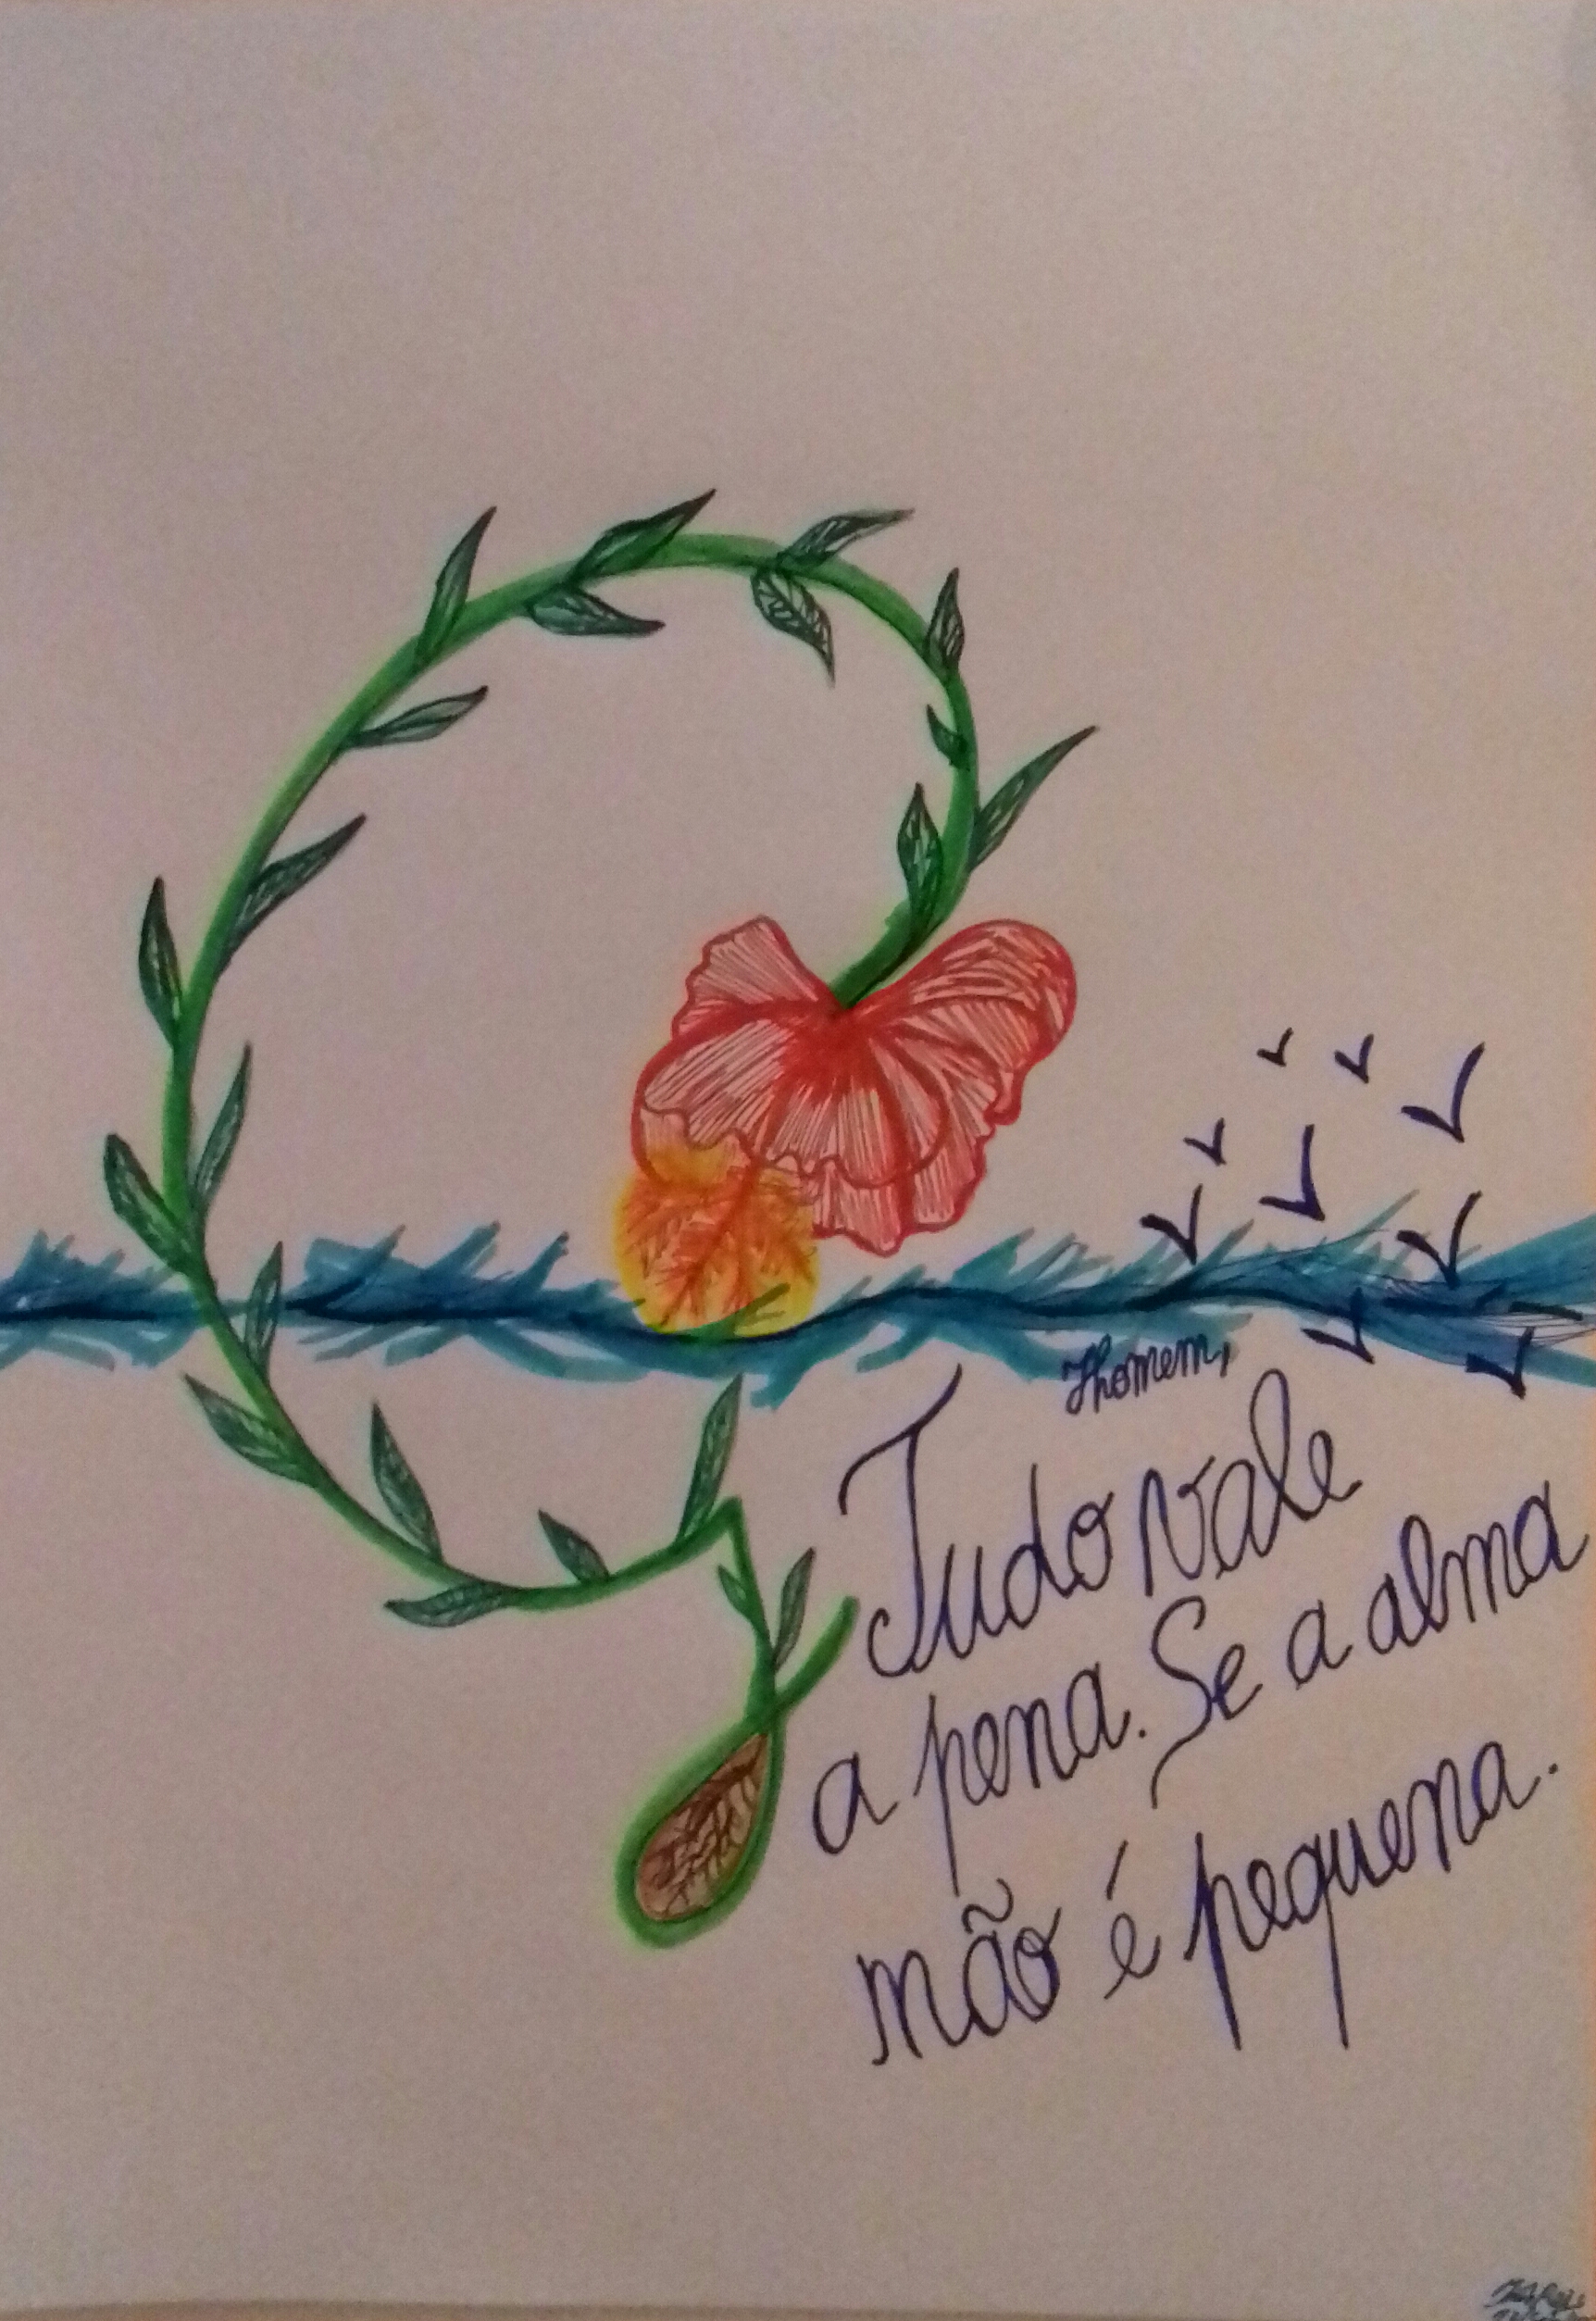 Thomem,
Tudo vale
a pena. Se a alma
não é pequena.